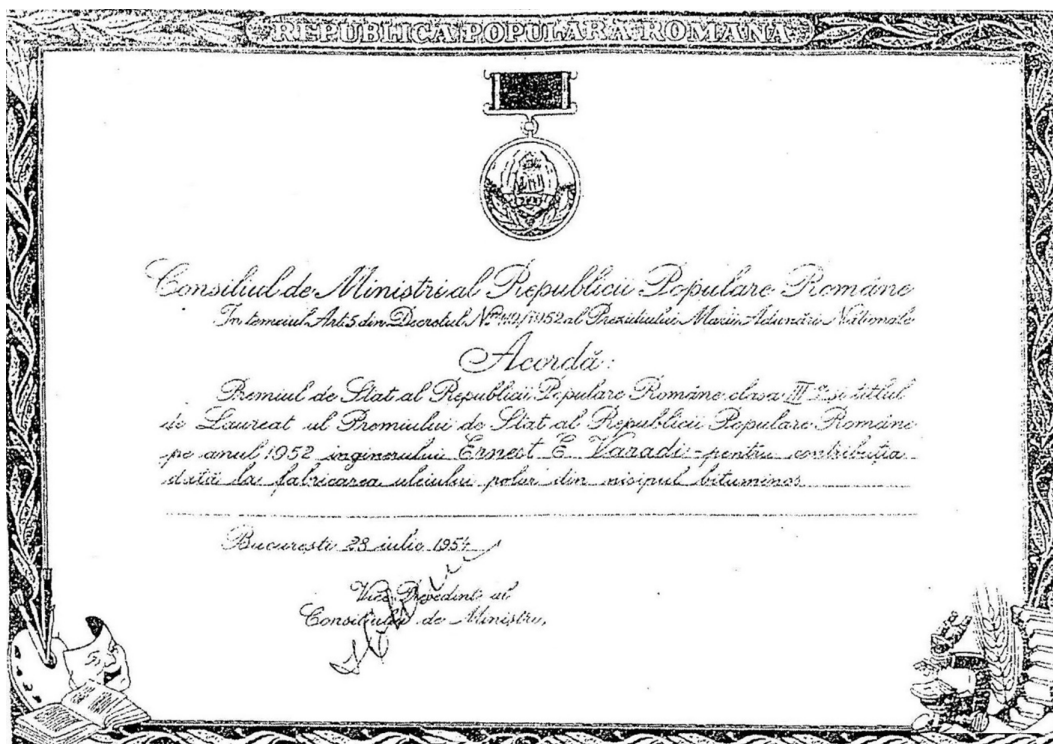 REPUBLICA POPULARA ROMANA
Consiliul de Miniștri al Republicii Populare Române
In temeiul Art. 5 din Decretul Nº /1952 al Prezidiului Marii Adunări Naționale
Acordă:
Premiul de Stat al Republicii Populare Române clasa III și titlul
de Laureat al Premiului de Stat al Republicii Populare Române
pe anul 1952 inginerului Ernest E. Varadi - pentru contribuția
dată la fabricarea uleiului polar din nisipul bituminos
București 28 iulie 1954
Vice-Președinte al
Consiliului de Miniștri,